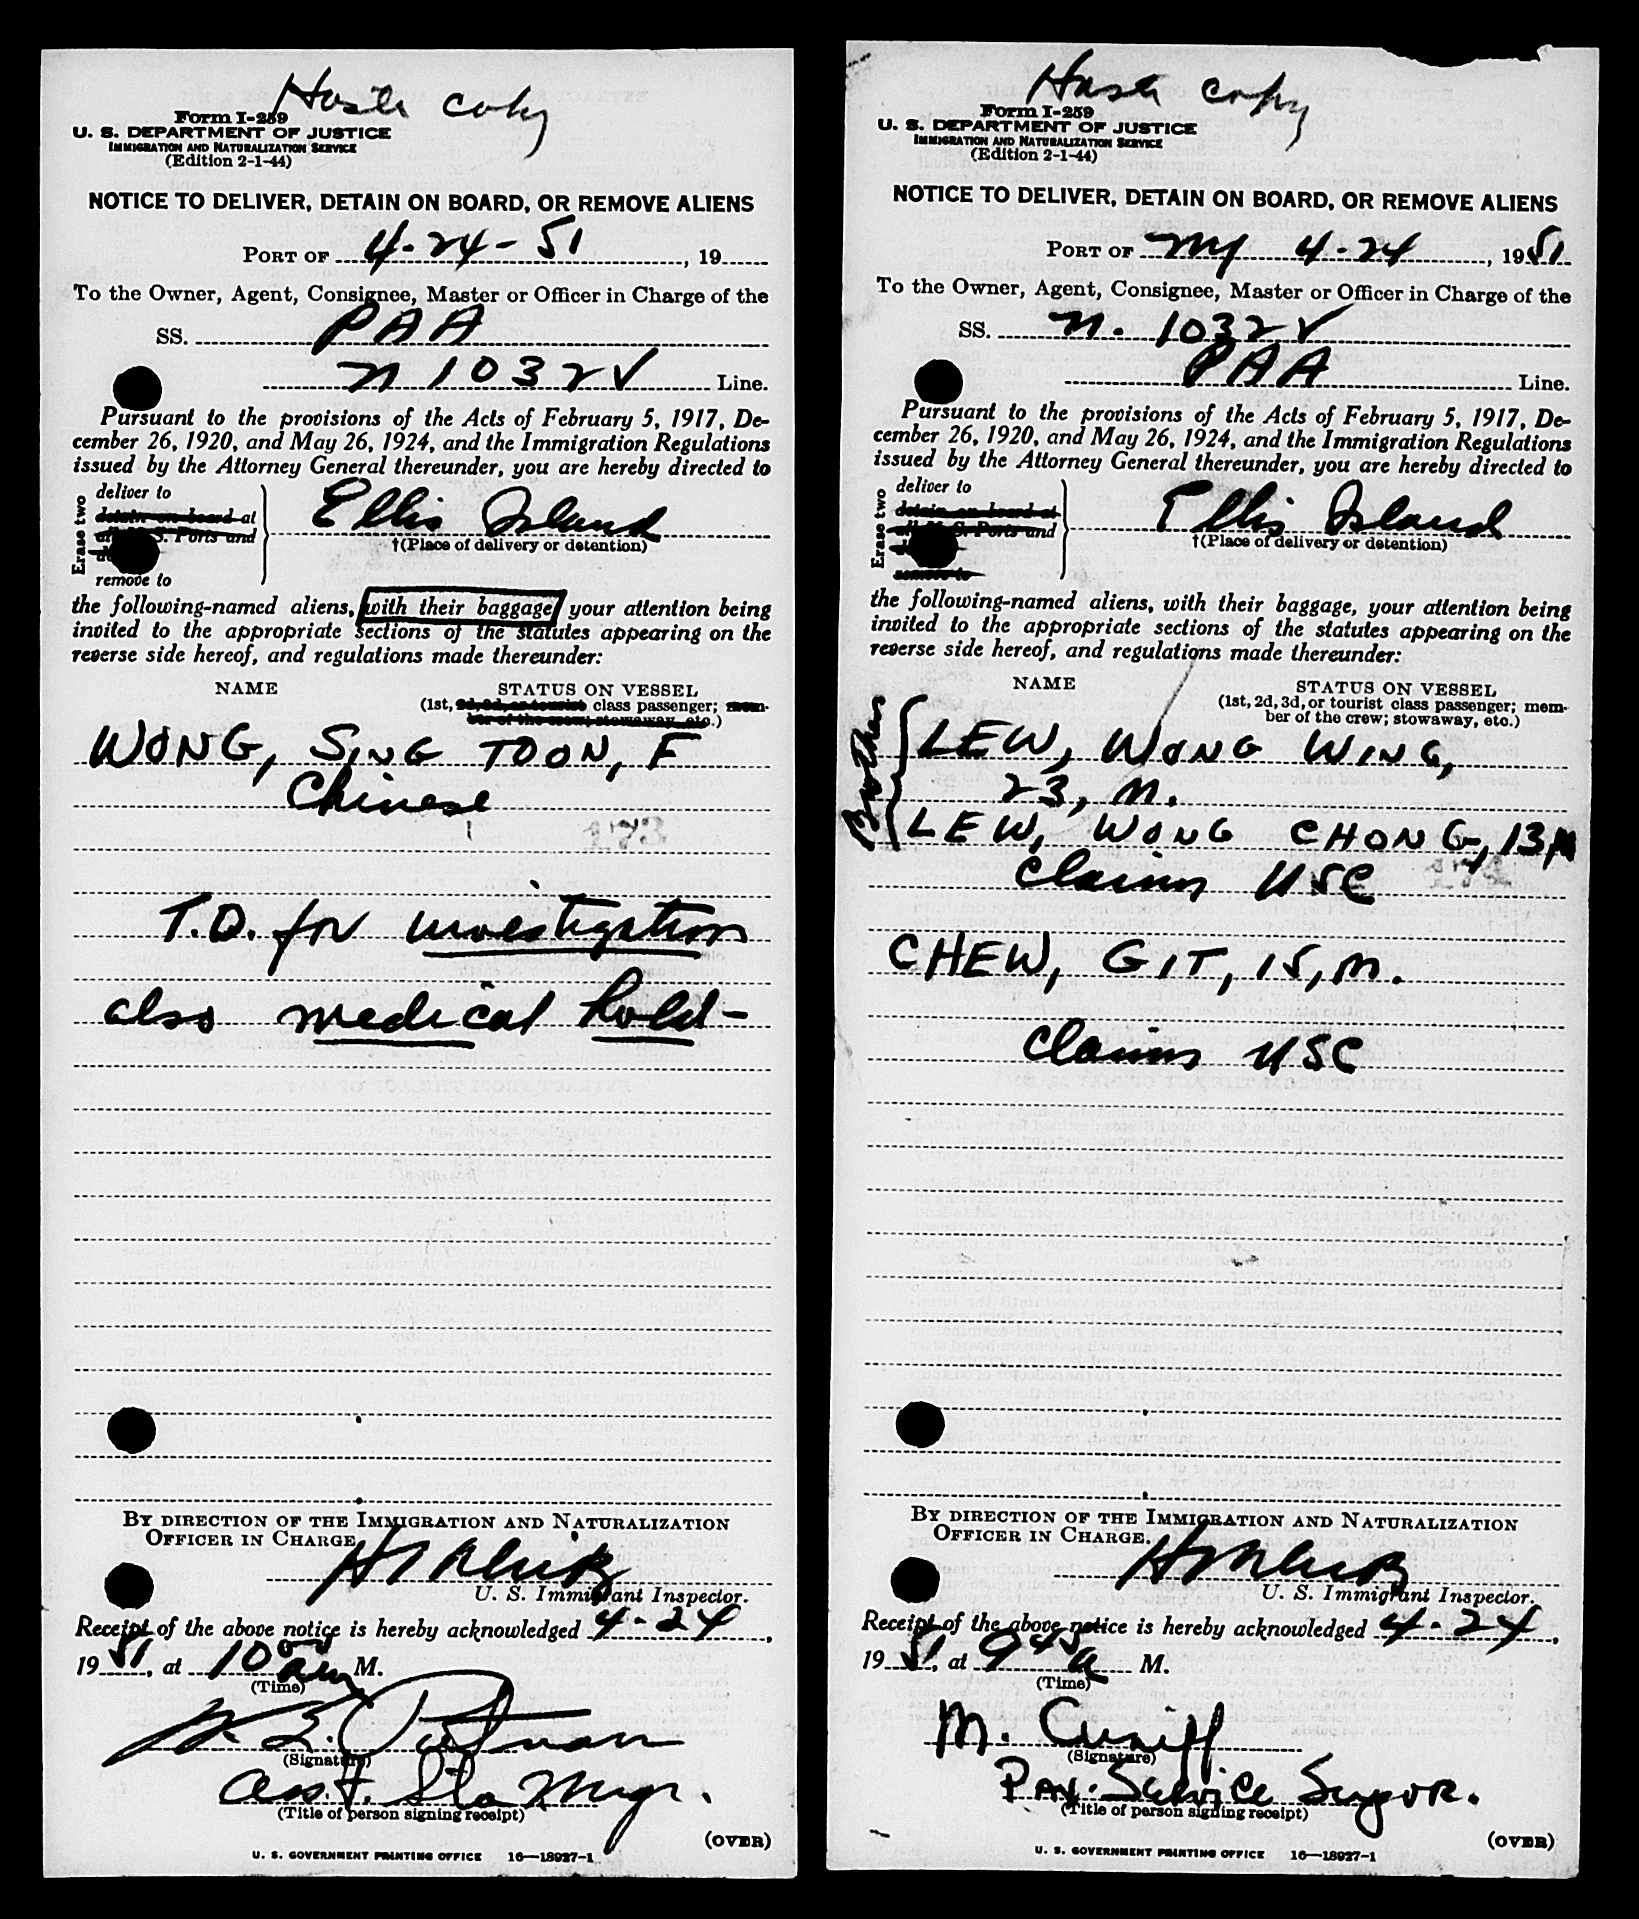 Haste copy
Form I-259
U. S. DEPARTMENT OF JUSTICE
IMMIGRATION AND NATURALIZATION SERVICE
(Edition 2-1-44)
NOTICE TO DELIVER, DETAIN ON BOARD, OR REMOVE ALIENS
PORT OF 4-24-51, 19
To the Owner, Agent, Consignee, Master or Officer in Charge of the
SS. PAA
N 1032V Line.
Pursuant to the provisions of the Acts of February 5, 1917, De-
cember 26, 1920, and May 26, 1924, and the Immigration Regulations
issued by the Attorney General thereunder, you are hereby directed to
Erase two
deliver to
detain on board at
all U. S. Ports and
remove to
Ellis Island
†(Place of delivery or detention)
the following-named aliens, with their baggage, your attention being
invited to the appropriate sections of the statutes appearing on the
reverse side hereof, and regulations made thereunder:
NAME STATUS ON VESSEL
(1st, 2d, 3d, or tourist class passenger; mem-
ber of the crew; stowaway, etc.)
WONG, SING TOON, F
Chinese
T.D. for investigation
also medical hold-
BY DIRECTION OF THE IMMIGRATION AND NATURALIZATION
OFFICER IN CHARGE.
U. S. Immigrant Inspector.
Receipt of the above notice is hereby acknowledged 4-24,
19 51, at 10 00 am M.
(Time)
(Signature)
Asst. Sta Mgr.
(Title of person signing receipt)
(OVER)
U. S. GOVERNMENT PRINTING OFFICE 16—18927-1
Haste copy
Form I-259
U. S. DEPARTMENT OF JUSTICE
IMMIGRATION AND NATURALIZATION SERVICE
(Edition 2-1-44)
NOTICE TO DELIVER, DETAIN ON BOARD, OR REMOVE ALIENS
PORT OF NY 4-24, 1951
To the Owner, Agent, Consignee, Master or Officer in Charge of the
SS. N. 1032V
PAA Line.
Pursuant to the provisions of the Acts of February 5, 1917, De-
cember 26, 1920, and May 26, 1924, and the Immigration Regulations
issued by the Attorney General thereunder, you are hereby directed to
Erase two
deliver to
detain on board at
all U. S. Ports and
remove to
Ellis Island
†(Place of delivery or detention)
the following-named aliens, with their baggage, your attention being
invited to the appropriate sections of the statutes appearing on the
reverse side hereof, and regulations made thereunder:
NAME STATUS ON VESSEL
(1st, 2d, 3d, or tourist class passenger; mem-
ber of the crew; stowaway, etc.)
Brothers
LEW, WONG WING,
23, M.
LEW, WONG CHONG, 13 M
Claims USC
CHEW, GIT, 15, M.
Claims USC
BY DIRECTION OF THE IMMIGRATION AND NATURALIZATION
OFFICER IN CHARGE.
U. S. Immigrant Inspector.
Receipt of the above notice is hereby acknowledged 4-24,
19 51, at 9 45 a M.
(Time)
M. Cuniff
(Signature)
PAX. Service Supvr.
(Title of person signing receipt)
(OVER)
U. S. GOVERNMENT PRINTING OFFICE 16—18927-1